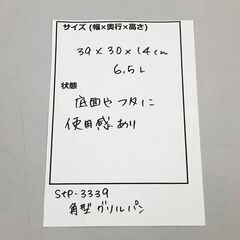 サイズ (幅×奥行×高さ)
39×30×14cm
6.5L
状態
底面やフタに
使用感あり
StP-3339
角型グリルパン